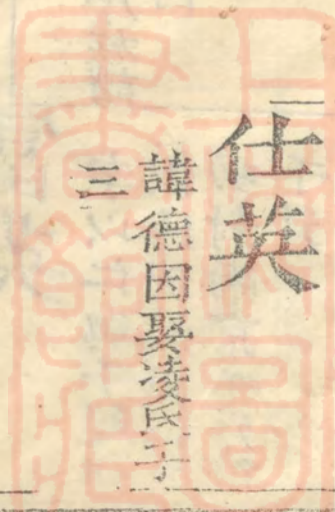 仕英
諱德因娶凌氏子
三